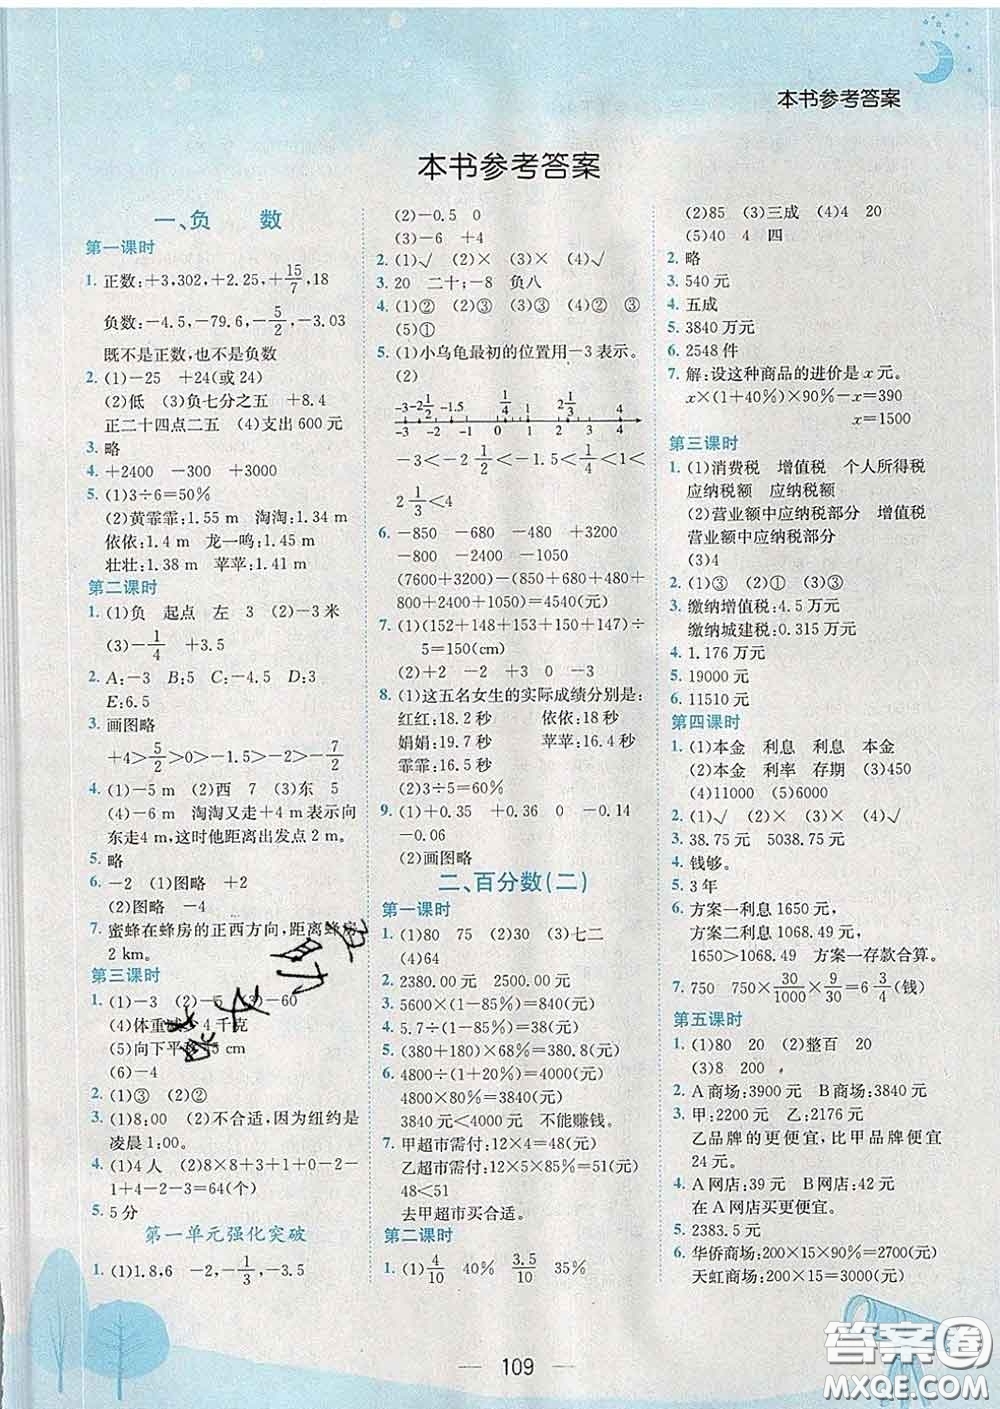 本书参考答案
本书参考答案
一、负 数
第一课时
1. 正数:+3,302,+2.25,+15/7,18
负数:-4.5,-79.6,-5/2,-3.03
既不是正数,也不是负数
2. (1)-25 +24(或24)
(2)低 (3)负七分之五 +8.4
正二十四点二五 (4)支出600元
3. 略
4. +2400 -300 +3000
5. (1)3÷6=50%
(2)黄霏霏:1.55 m 淘淘:1.34 m
依依:1.4 m 龙一鸣:1.45 m
壮壮:1.38 m 苹苹:1.41 m
第二课时
1. (1)负 起点 左 3 (2)-3米
(3)-1/4 +3.5
2. A:-3 B:5 C:-4.5 D:3
E:6.5
3. 画图略
+4>5/2>0>-1.5>-2>-7/2
4. (1)-5 m (2)西 7 (3)东 5
(4)-6 m 淘淘又走+4 m表示向
东走4 m,这时他距离出发点2 m。
5. 略
6. -2 (1)图略 +2
(2)图略 -4
7. 蜜蜂在蜂房的正西方向,距离蜂房
2 km。
第三课时
1. (1)-3 (2)-5 (3)-60
(4)体重减少4千克
(5)向下平移15 cm
(6)-4
2. (1)③ (2)②
3. (1)8:00 (2)不合适,因为纽约是
凌晨1:00。
4. (1)4人 (2)8×8+3+0-2+
1+4-2-1-2-3=64(个)
5. 5分
第一单元强化突破
1. (1)1,8,6 -2,-1/3,-3.5
(2)-0.5 0
(3)-6 +4
2. (1)√ (2)× (3)× (4)√
3. 20 二十;-8 负八
4. (1)② (2)③ (3)③ (4)② ③
(5)①
5. (1)小乌龟最初的位置用-3表示。
(2)
-3 -2 1/2 -1.5 1/4 2 1/3 4
-3 -2 -1 0 1 2 3 4
-3<-2 1/2<-1.5<1/4<1<
2 1/3<4
6. -850 -680 -480 +3200
-800 -2400 -1050
(7600+3200)-(850+680+480+
800+2400+1050)=4540(元)
7. (1)(152+148+153+150+147)÷
5=150(cm)
(2)+2 -2 +3 0 -3
8. (1)这五名女生的实际成绩分别是:
红红:18.2秒 依依:18秒
娟娟:19.7秒 苹苹:16.4秒
霏霏:16.5秒
(2)3÷5=60%
9. (1)+0.35 +0.36 0 +0.4
-0.06
(2)画图略
二、百分数(二)
第一课时
1. (1)80 75 (2)30 (3)七二
(4)64
2. 2380.00元 2500.00元
3. 5600×(1-85%)=840(元)
4. 5.7÷(1-85%)=38(元)
5. (380+110)×68%=333.2(元)
6. 4800÷(1+20%)=4000(元)
4800×80%=3840(元)
3840元<4000元 不能赚钱。
7. 甲超市需付:12×4=48(元)
乙超市需付:12×5×85%=51(元)
48<51
去甲超市买合适。
第二课时
1. (1)4/10 40% 3.5/10 35%
(2)85 (3)三成 (4)4 20
(5)40 4 四
2. 略
3. 540元
4. 五成
5. 3840万元
6. 2548件
7. 解:设这种商品的进价是x元。
x×(1+40%)×90%-x=390
x=1500
第三课时
1. (1)消费税 增值税 个人所得税
应纳税额 应纳税额
(2)营业额中应纳税部分 增值税
营业额中应纳税部分
(3)4
2. (1)③ (2)① (3)③
3. 缴纳增值税:4.5万元
缴纳城建税:0.315万元
4. 1.176万元
5. 19000元
6. 11510元
第四课时
1. (1)本金 利息 利息 本金
(2)本金 利率 存期 (3)450
(4)11000 (5)2000
2. (1)√ (2)× (3)× (4)√
3. 38.75元 5038.75元
4. 钱够。
5. 3年
6. 方案一利息1650元,
方案二利息1068.49元
1650>1068.49 方案一存款合算。
7. 750 750×30/1000×9/30=6 3/4(钱)
第五课时
1. (1)80 20 (2)整百 20
(3)8 200
2. A商场:3900元 B商场:3840元
3. 甲:2200元 乙:2176元
乙品牌的更便宜,比甲品牌便宜
24元。
4. A网店:39元 B网店:42元
在A网店买更便宜。
5. 2383.5元
6. 华侨商场:200×15×90%=2700(元)
天虹商场:200×15=3000(元)
109
答案圈
MXQE.COM